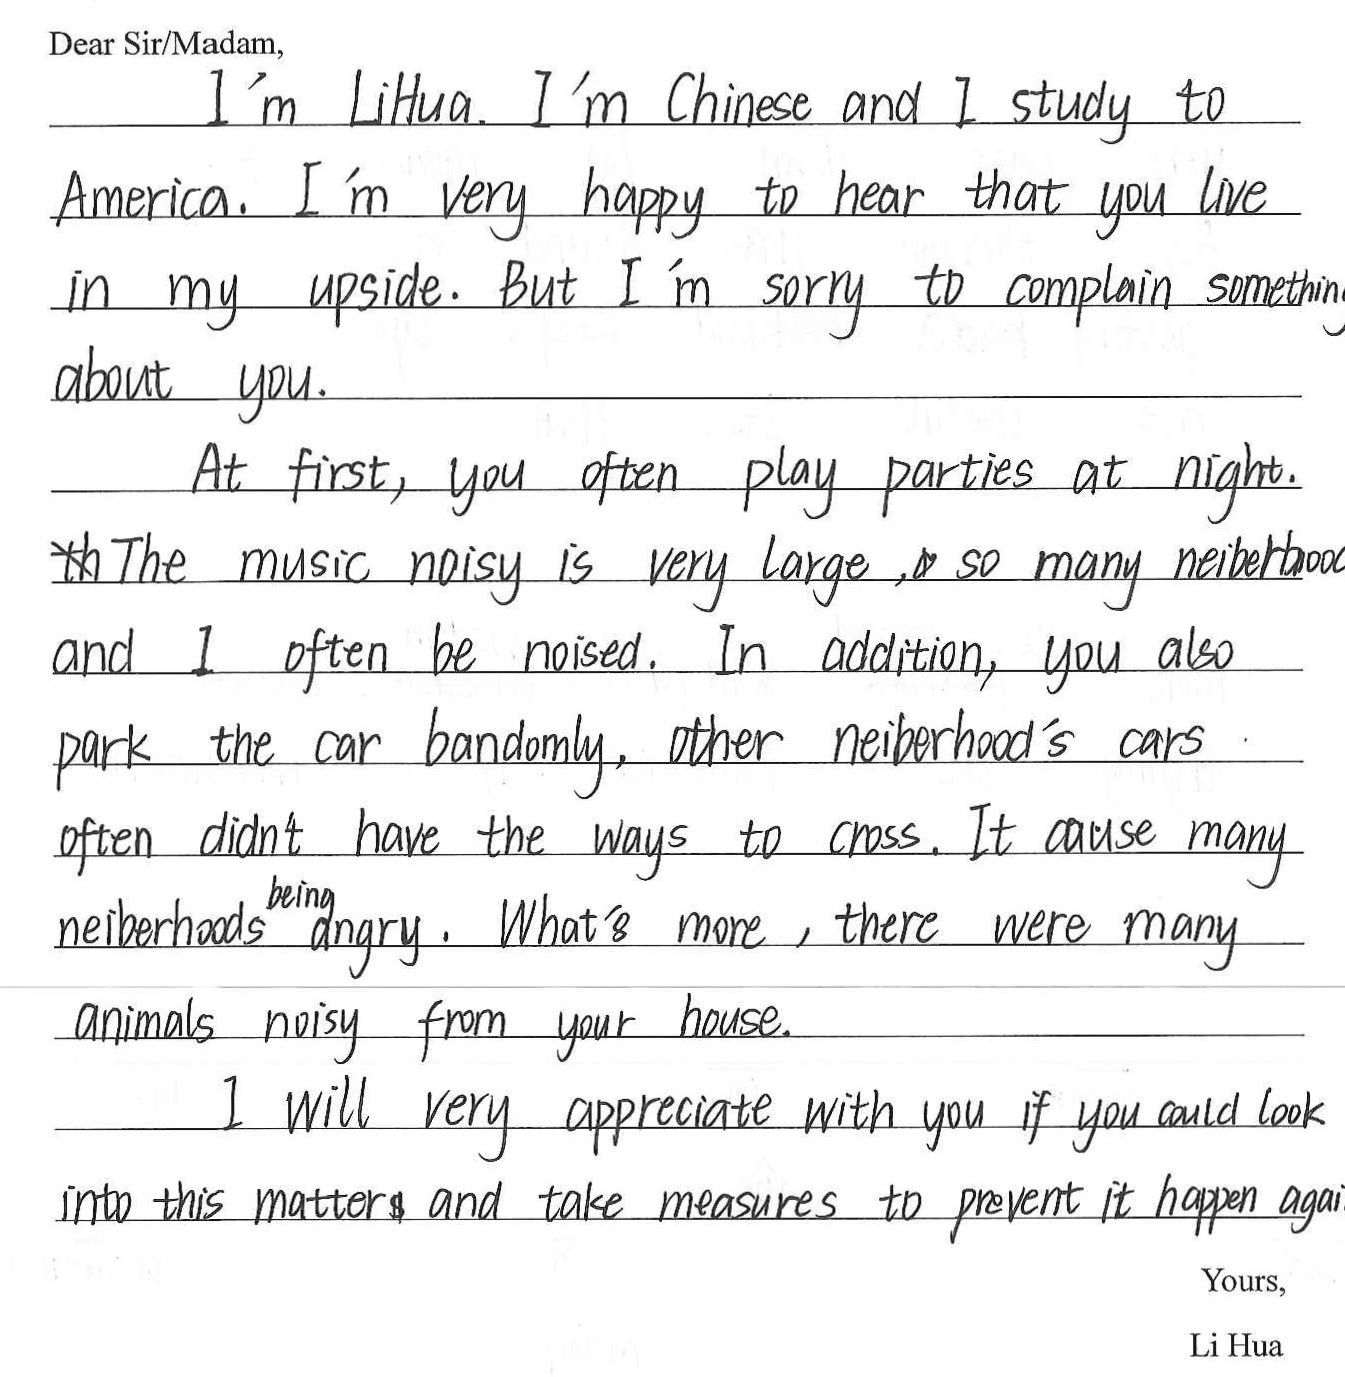 Dear Sir/Madam,
I'm LiHua. I'm Chinese and I study to
America. I'm very happy to hear that you live
in my upside. But I'm sorry to complain something
about you.
At first, you often play parties at night.
The music noisy is very large, so many neiberhood
and I often be noised. In addition, you also
park the car bandomly, other neiberhood's cars
often didn't have the ways to cross. It cause many
neiberhoods being angry. What's more, there were many
animals noisy from your house.
I will very appreciate with you if you could look
into this matters and take measures to prevent it happen agai
Yours,
Li Hua